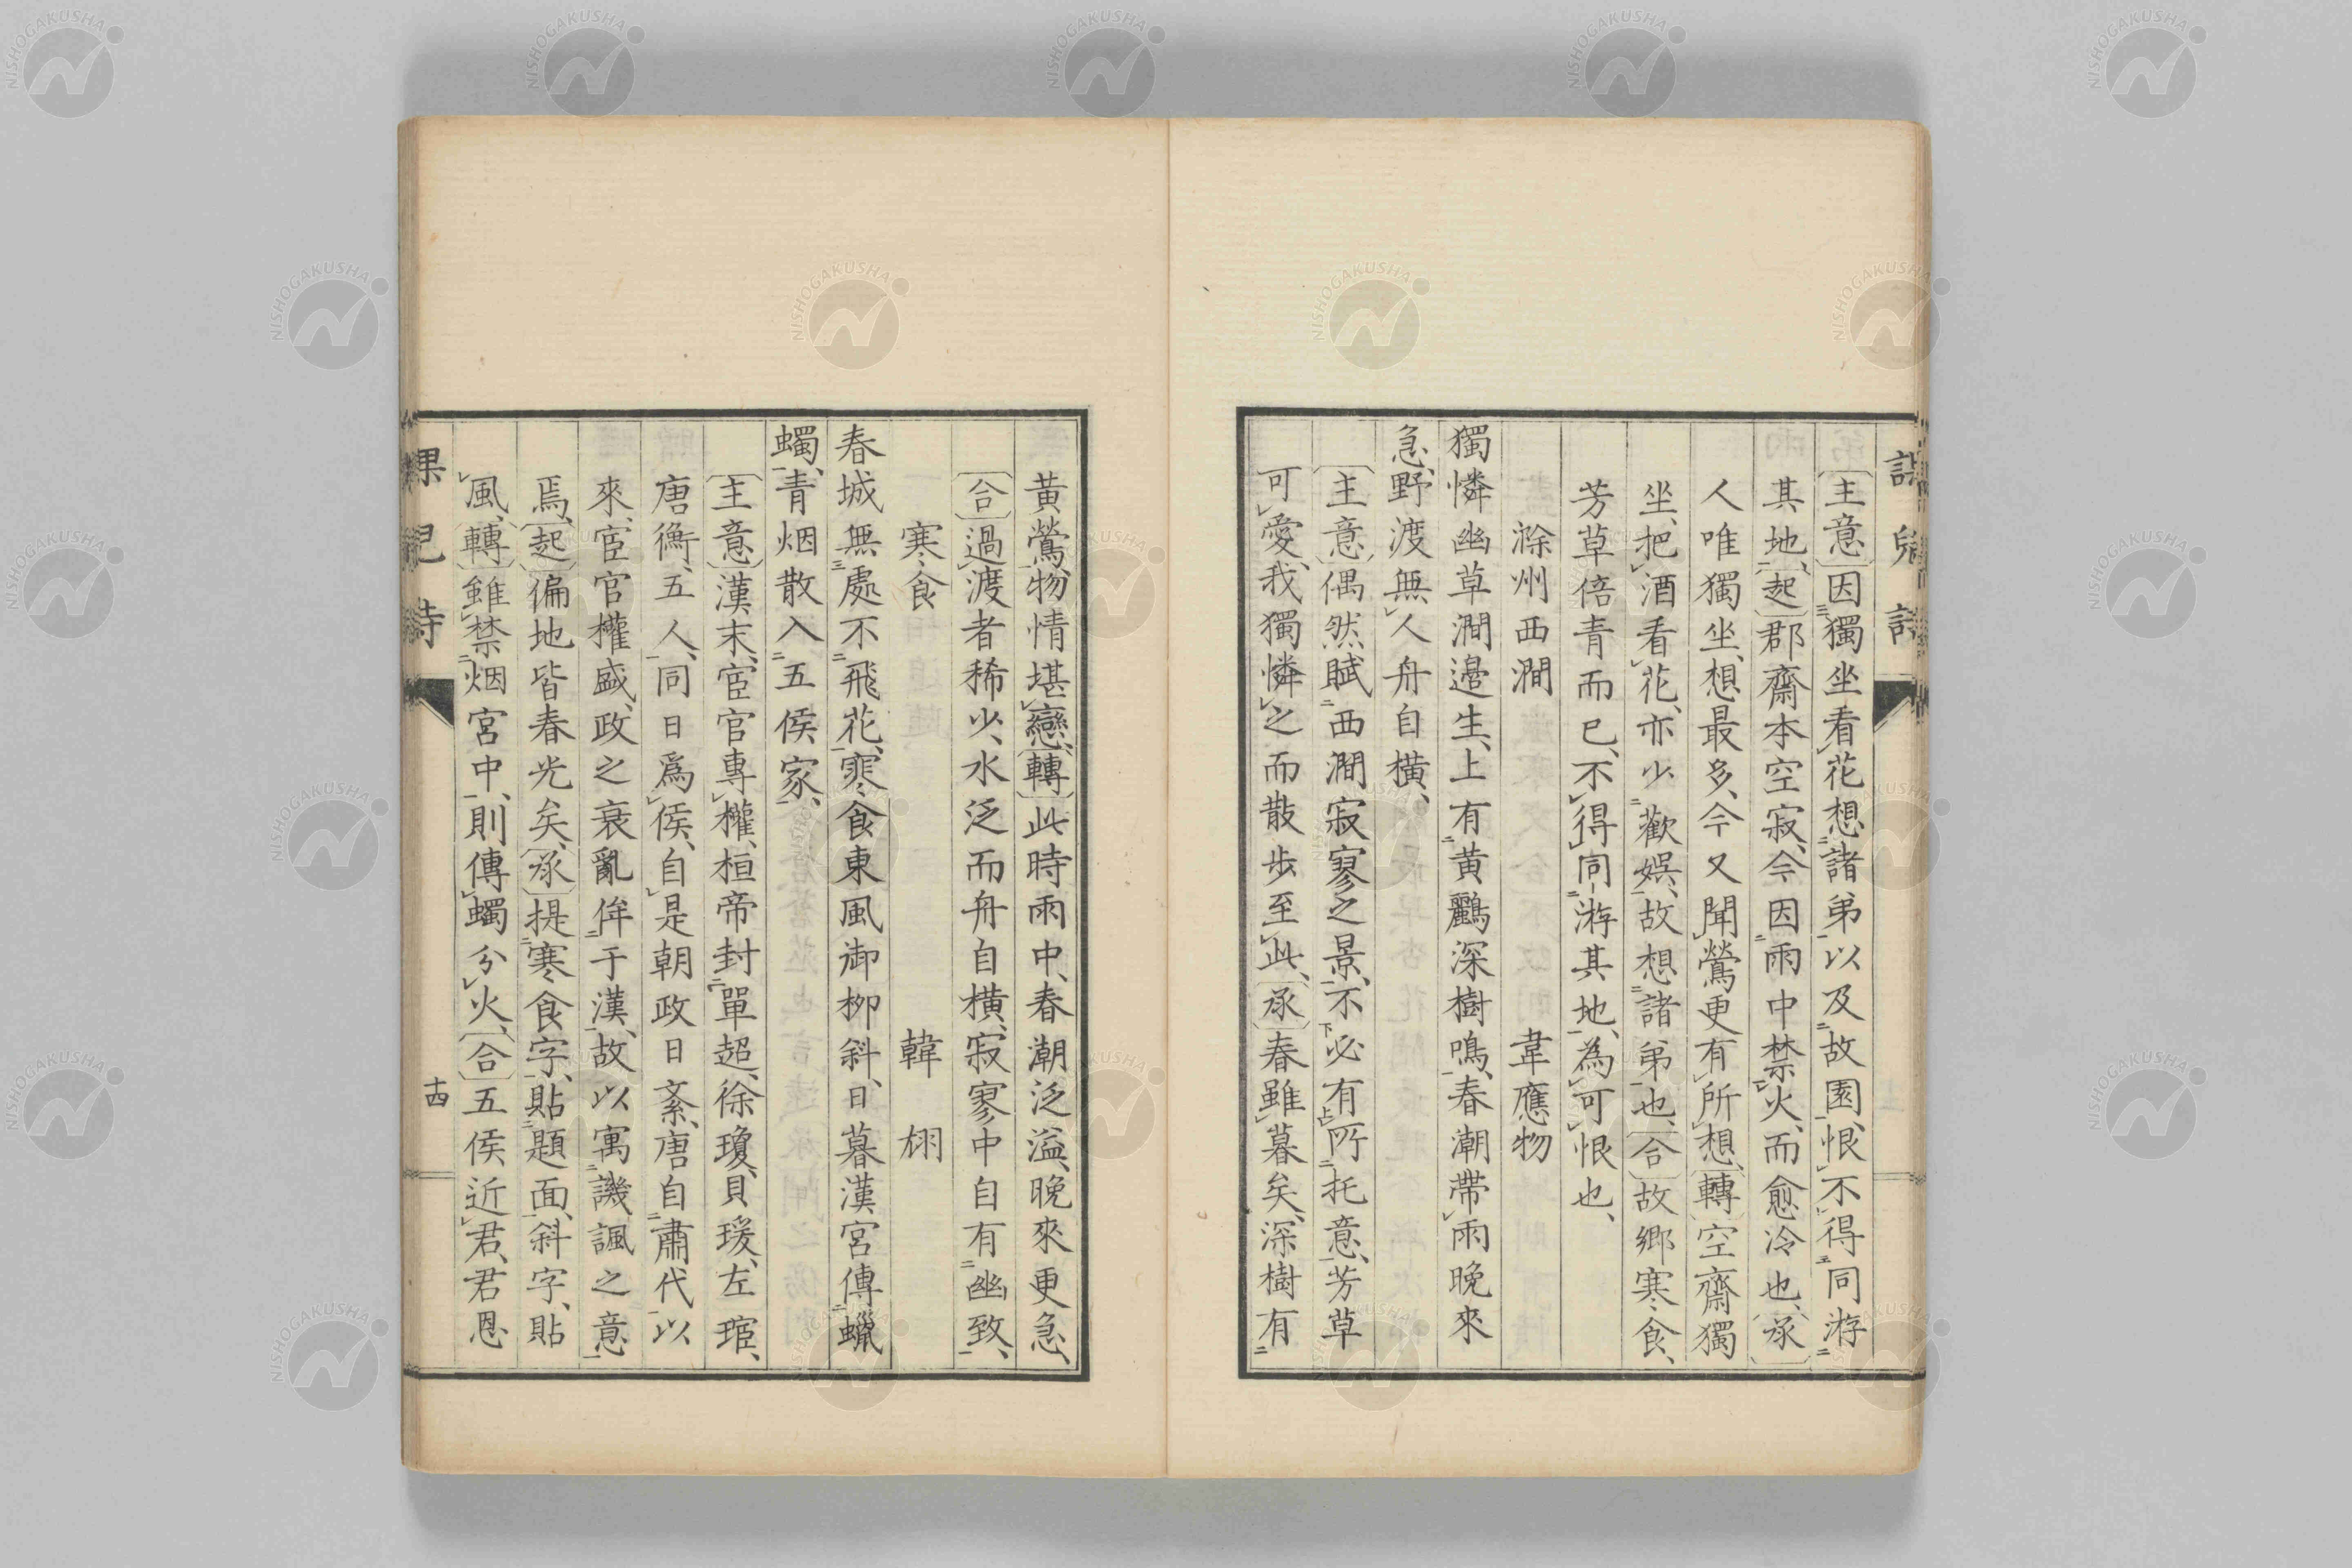 〔主意〕因獨坐看花想諸弟以及故園、恨不得同游
其地、〔起〕郡齋本空寂、今因雨中禁火、而愈冷也、〔承〕
人唯獨坐、想最多、今又聞鶯更有所想、〔轉〕空齋獨
坐、把酒看花、亦少歡娯、故想諸弟也、〔合〕故鄉寒食、
芳草倍青而已、不得同游其地、為可恨也、
滁州西澗　韋應物
獨憐幽草澗邉生、上有黄鸝深樹鳴、春潮帶雨晚來
急、野渡無人舟自橫、
〔主意〕偶然賦西澗寂寥之景、不必有所托意、芳草
可愛、我獨憐之而散歩至此、〔承〕春雖暮矣、深樹有
黄鶯、物情堪戀、〔轉〕此時雨中、春潮泛溢、晚來更急、
〔合〕過渡者稀少、水泛而舟自橫、寂寥中自有幽致、
寒食　韓翃
春城無處不飛花、寒食東風御柳斜、日暮漢宮傳蠟
蠋、青烟散入五侯家、
〔主意〕漢末、宦官專權、桓帝封單超、徐瓊、貝瑗、左琯、
唐衡、五人、同日爲侯、自是朝政日紊、唐自肅代以
來、宦官權盛、政之衰亂侔于漢、故以寓譏諷之意
焉、〔起〕偏地皆春光矣、〔承〕提寒食字、貼題面、斜字、貼
風、〔轉〕雖禁烟宮中、則傳蠋分火、〔合〕五侯近君、君恩
十四
NISHOGAKUSHA